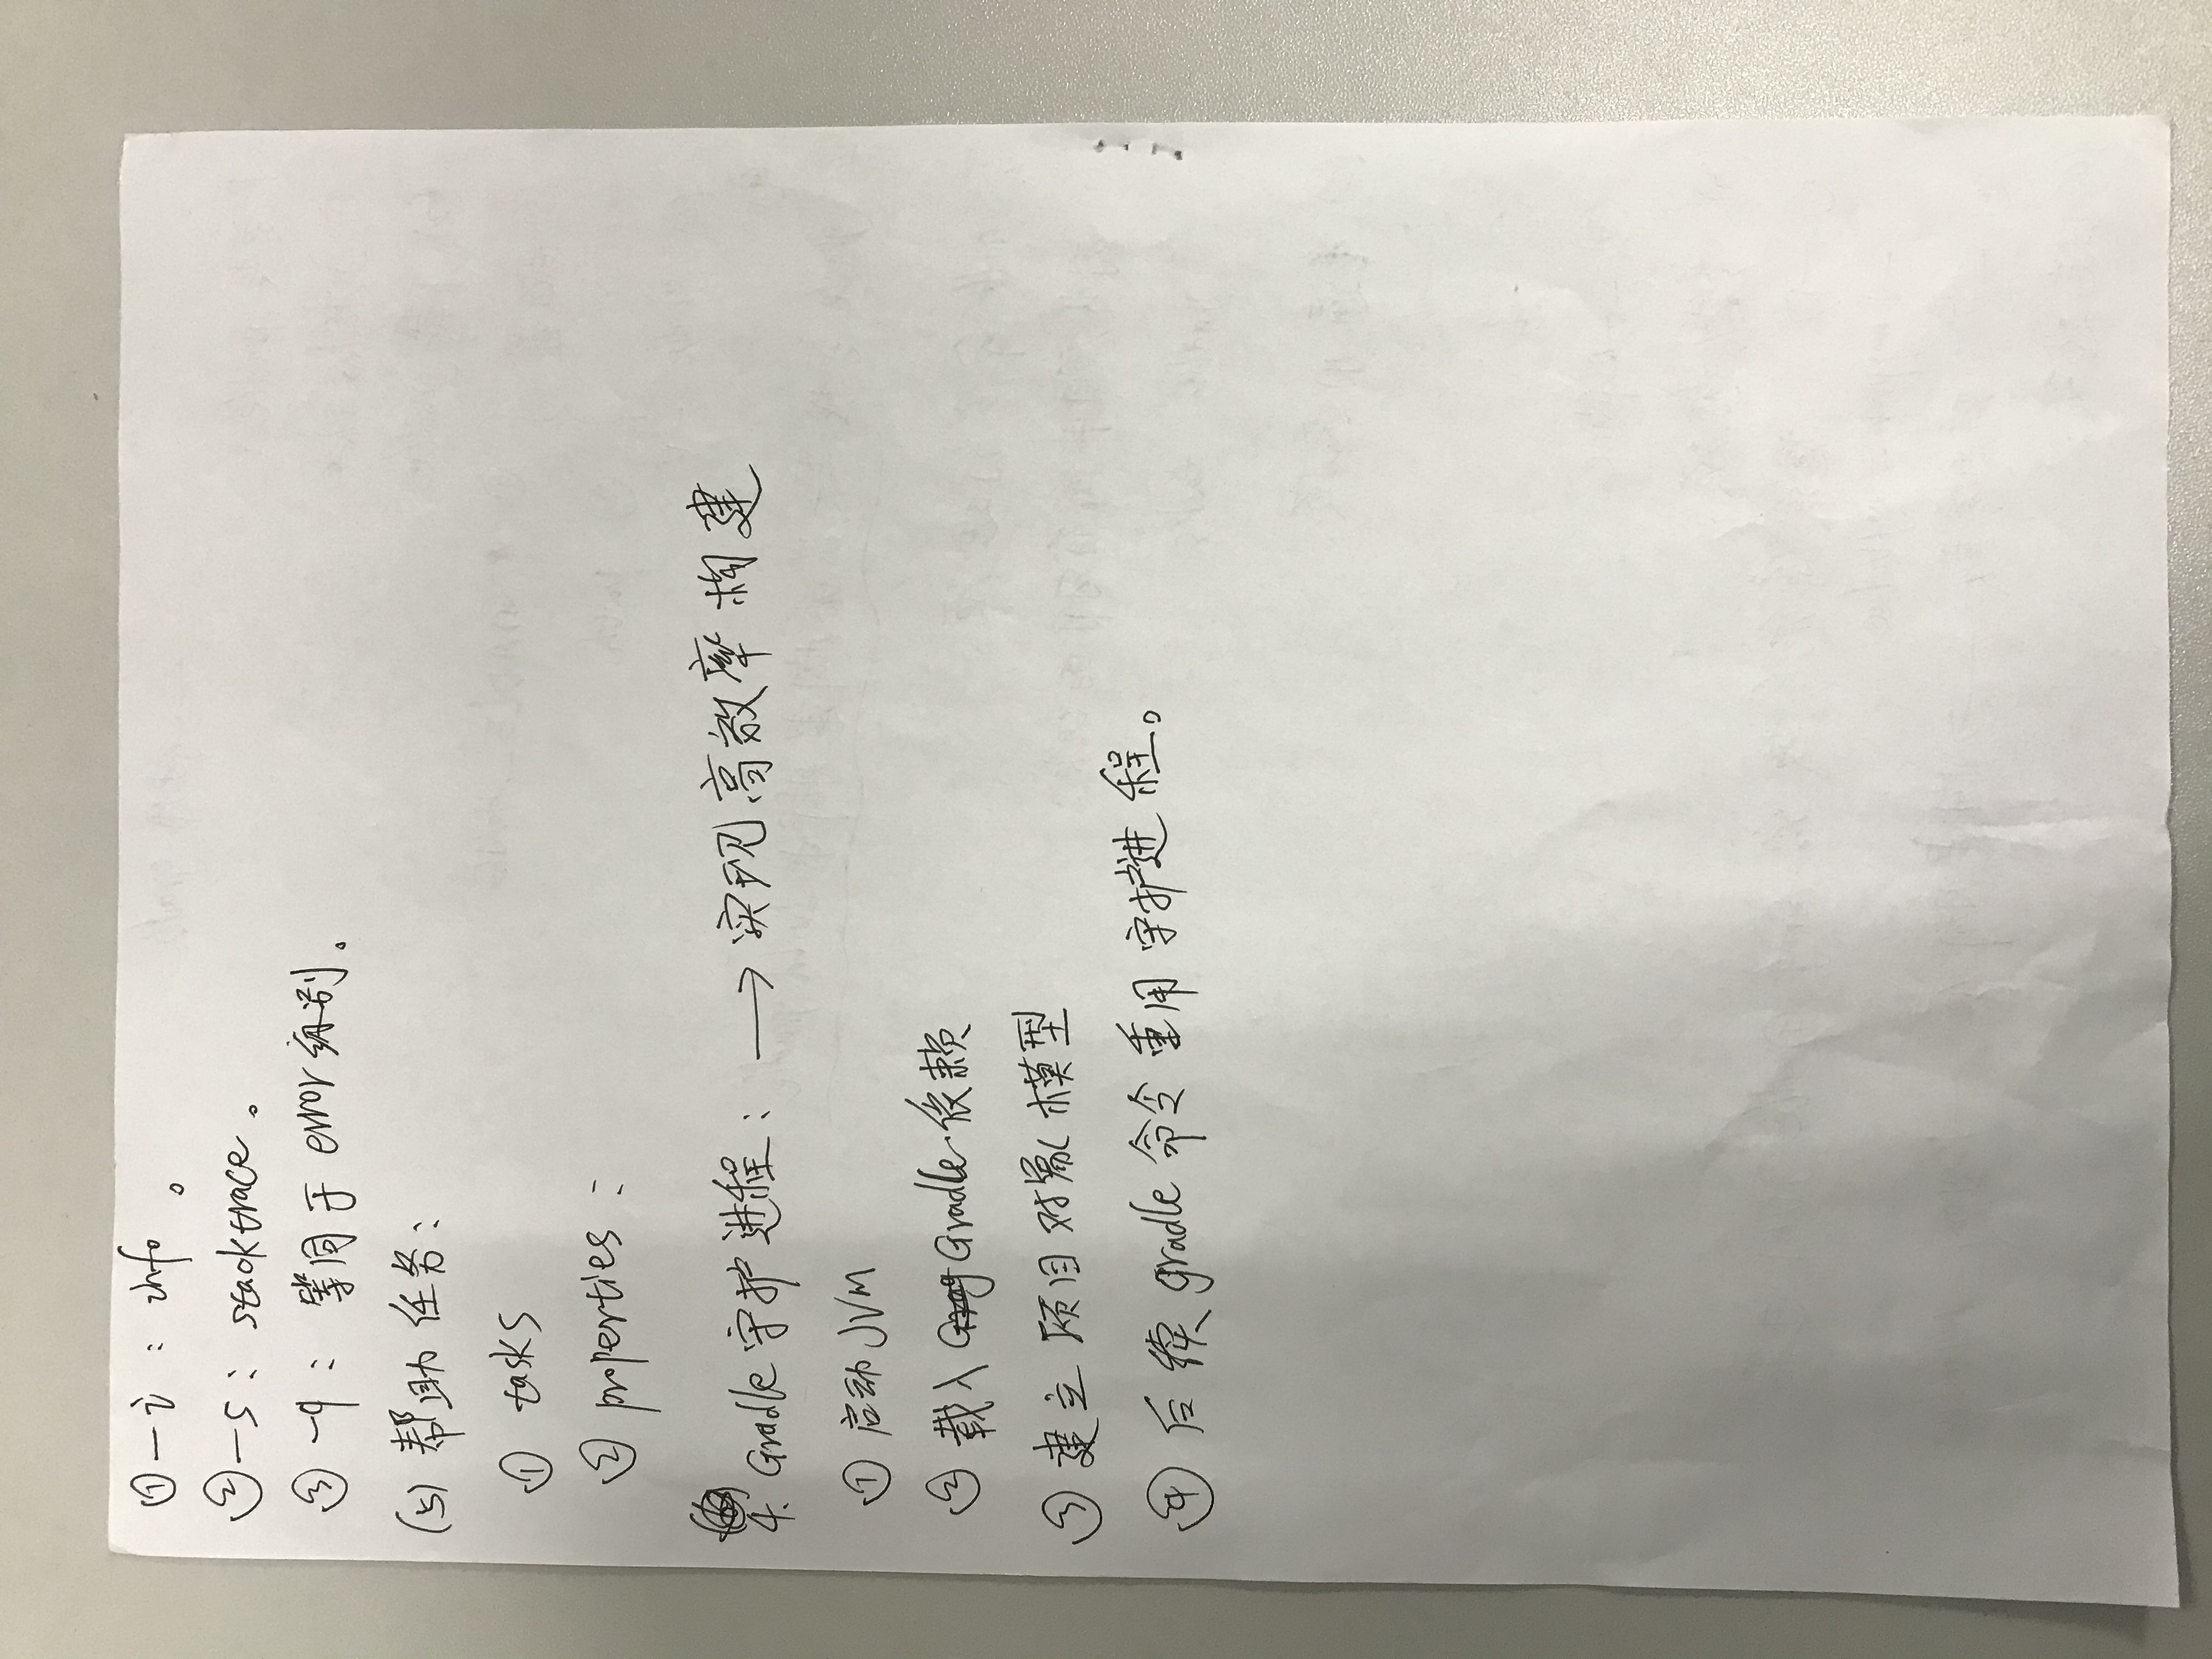 ①-i：info。
②-s：stacktrace。
③-q：等同于error级别。
(5)帮助任务：
① tasks
② properties：
4. Gradle守护进程：→实现高效率构建
①启动JVM
②载入Gradle依赖
③建立项目对象模型
④后续gradle命令重用守护进程。